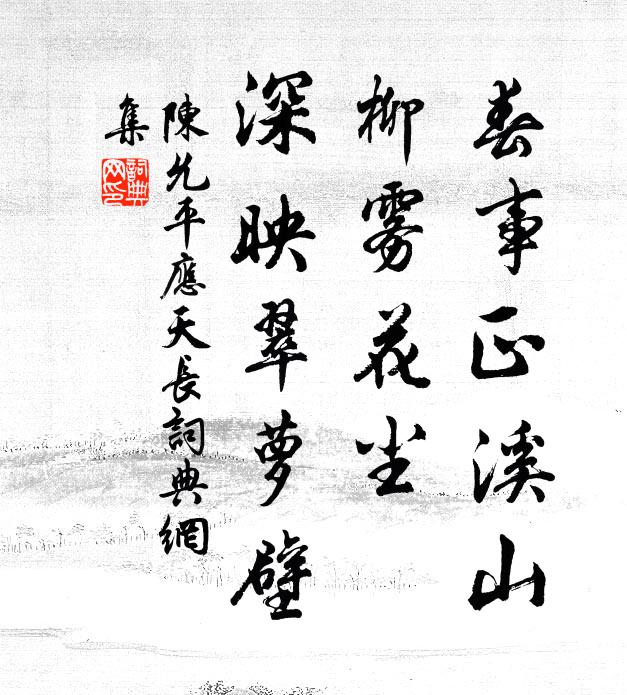 春事正溪山
柳雾花尘
深映翠萝壁
陳允平應天長詞典網
集
詞典網印